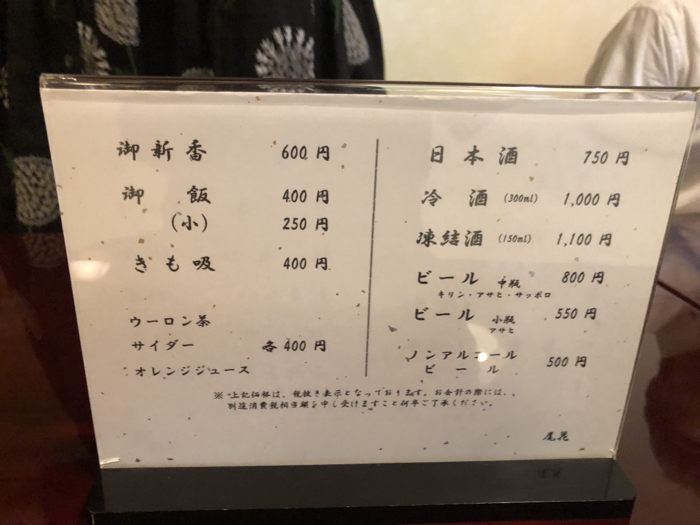 御新香 600円
御飯 400円
(小) 250円
きも吸 400円
ウーロン茶
サイダー 各400円
オレンジジュース
日本酒 750円
冷酒 (300ml) 1,000円
凍結酒 (150ml) 1,100円
ビール 中瓶 800円
キリン・アサヒ・サッポロ
ビール 小瓶 550円
アサヒ
ノンアルコール
ビール 500円
※ 上記価格は、税抜き表示となっております。お会計の際には、
別途消費税相当額を申し受けますこと何卒ご了承ください。
尾花